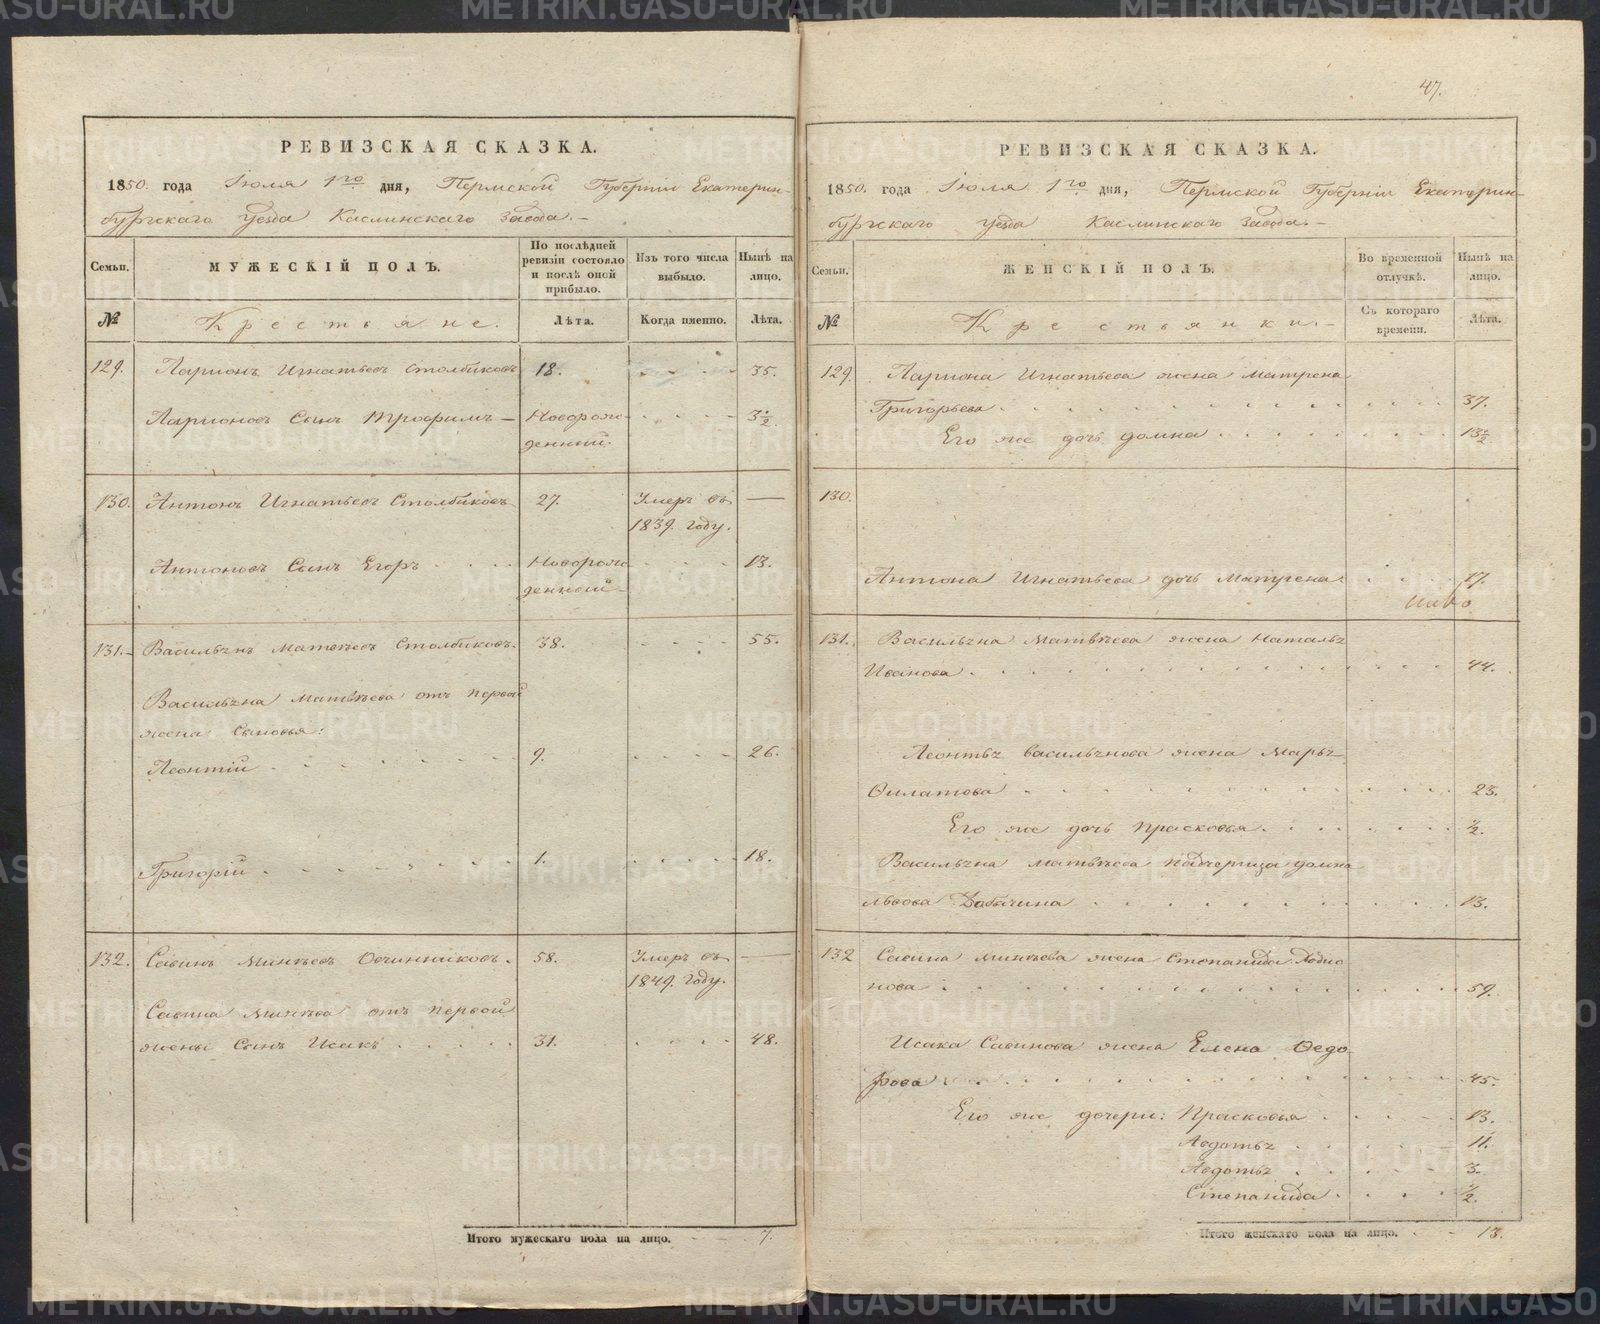 РЕВИЗСКАЯ СКАЗКА.
1850. года Іюля 1го дня, Пермской Губерніи Екатерин-
бургскаго уезда Каслинскаго завода.-
Семьи.
МУЖЕСКІЙ ПОЛЪ.
По послѣдней ревизіи состояло и послѣ оной прибыло.
Изъ того числа выбыло.
Нынѣ на лицо.
№ Крестьяне. Лѣта. Когда именно. Лѣта.
129. Ларионъ Игнатьевъ Столбиковъ 18. 35.
Ларионовъ Сынъ Трофимъ — Новорож- 3½
денный.
130. Антонъ Игнатьевъ Столбиковъ 27. Умеръ въ —
1839. году.
Антоновъ Сынъ Егоръ Новорож 13.
денный
131. Васильянъ Матвѣевъ Столбиковъ. 38. 55.
Васильяна Матвѣева отъ первой
жены Сыновья:
Леонтій 9. 26.
Григорій 1. 18.
132. Савинъ Минѣевъ Овчинниковъ. 58. Умеръ въ —
1849. году.
Савина Минѣева отъ первой
жены Сынъ Исакъ 31. 48.
Итого мужескаго пола на лицо. 7.
47.
РЕВИЗСКАЯ СКАЗКА.
1850. года Іюля 1го дня, Пермской Губерніи Екатерин-
бургскаго уезда Каслинскаго завода.-
Семьи.
ЖЕНСКІЙ ПОЛЪ.
Во временной отлучкѣ.
Нынѣ на лицо.
№ Крестьянки.- Съ котораго времени. Лѣта.
129. Лариона Игнатьева жена Матрена
Григорьева 37.
Его же дочь Домна 13½
130.
Антона Игнатьева дочь Матрена 17.
131. Васильяна Матвѣева жена Наталья
Иванова 44.
Леонтья Васильянова жена Марья
Филатова 23.
Его же дочь Прасковья ½.
Васильяна Матвѣева падчерица Домна
Львова 13.
132 Савина Минѣева жена Степанида Родио
нова 59.
Исака Савинова жена Елена Федо
рова 45.
Его же дочери: Прасковья 13.
Авдотья 11.
Авдотья 3.
Степанида ½.
Итого женскаго пола на лицо. 13.
METRIKI.GASO-URAL.RU